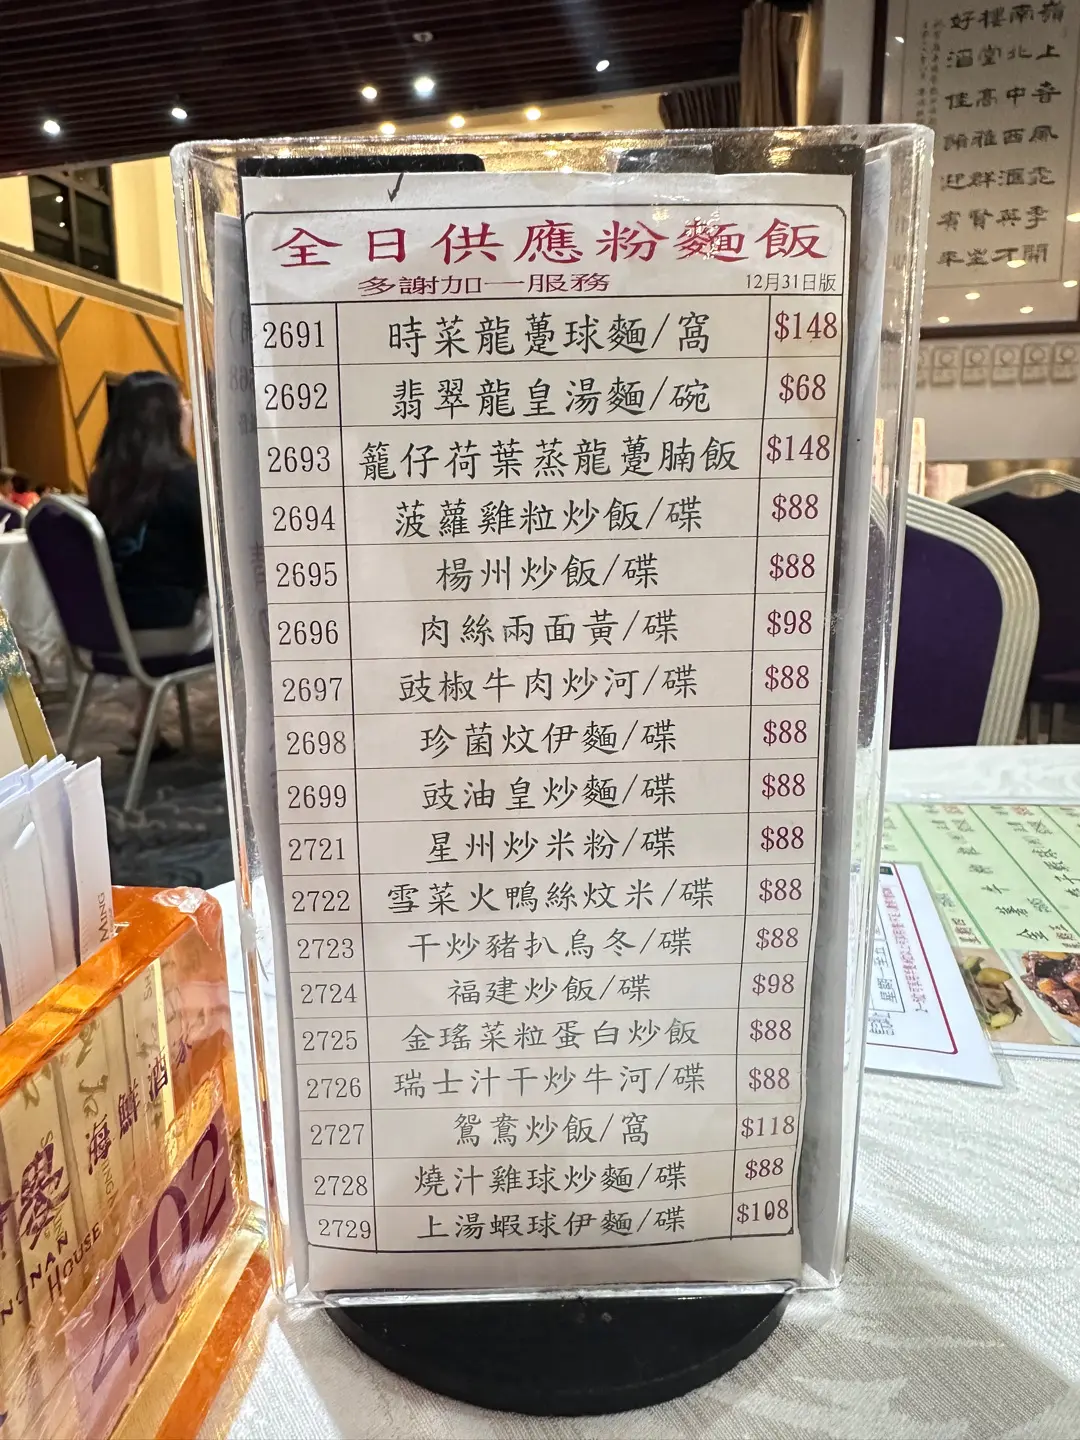 全日供應粉麵飯
多謝加一服務
12月31日版
2691 時菜龍躉球麵/窩 $148
2692 翡翠龍皇湯麵/碗 $68
2693 籠仔荷葉蒸龍躉腩飯 $148
2694 菠蘿雞粒炒飯/碟 $88
2695 楊州炒飯/碟 $88
2696 肉絲兩面黃/碟 $98
2697 豉椒牛肉炒河/碟 $88
2698 珍菌炆伊麵/碟 $88
2699 豉油皇炒麵/碟 $88
2721 星州炒米粉/碟 $88
2722 雪菜火鴨絲炆米/碟 $88
2723 干炒豬扒烏冬/碟 $88
2724 福建炒飯/碟 $98
2725 金瑤菜粒蛋白炒飯 $88
2726 瑞士汁干炒牛河/碟 $88
2727 鴛鴦炒飯/窩 $118
2728 燒汁雞球炒麵/碟 $88
2729 上湯蝦球伊麵/碟 $108
海鮮酒家
HOUSE
402